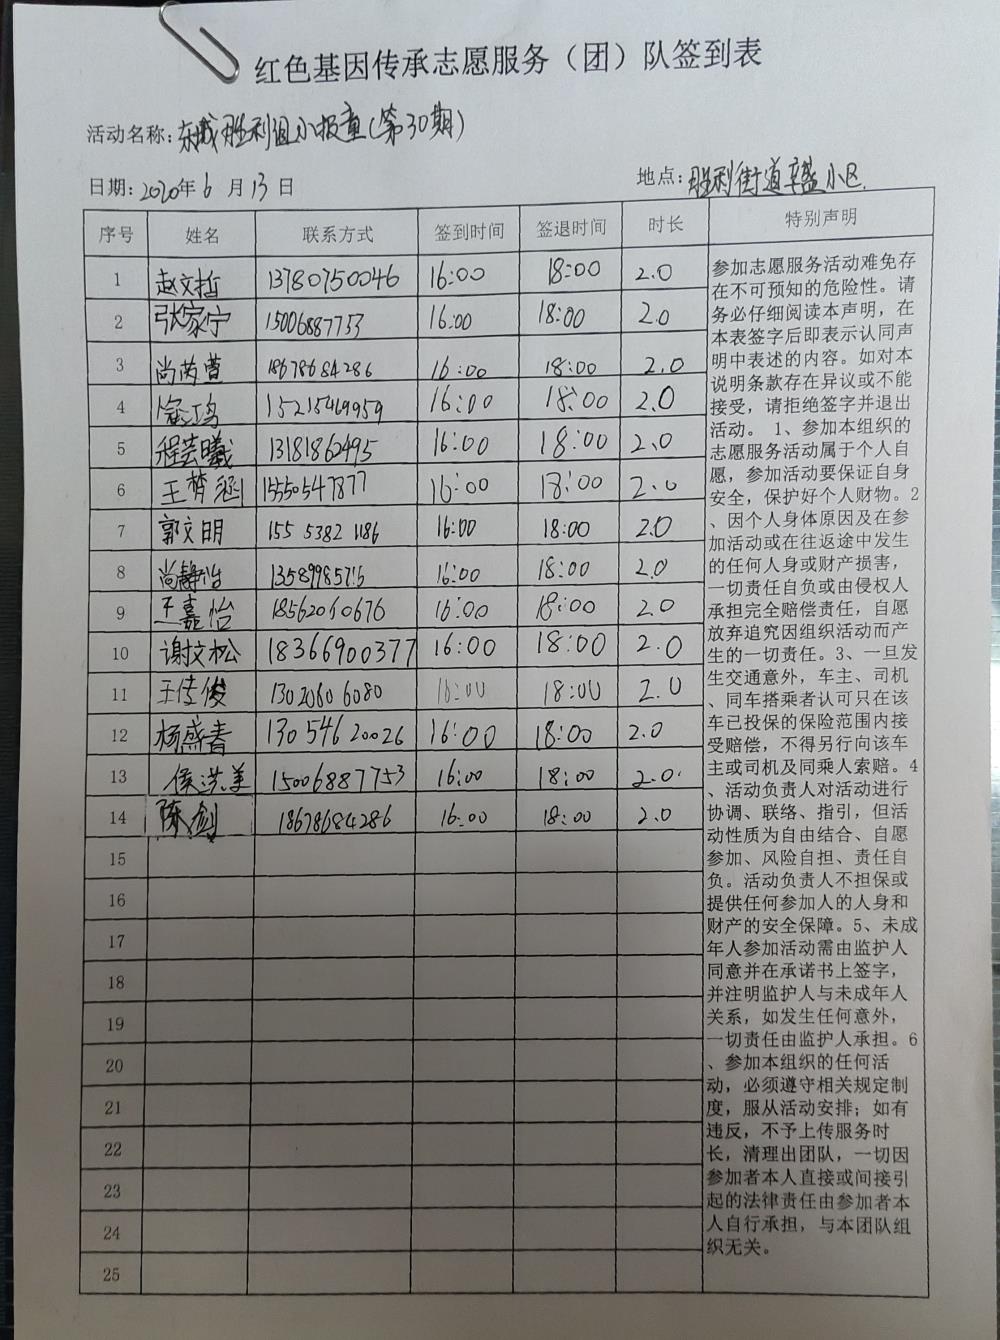 红色基因传承志愿服务（团）队签到表
活动名称：东城胜利组小报童（第30期）
日期：2020年6月13日 地点：胜利街道辛盛小区
序号 姓名 联系方式 签到时间 签退时间 时长 特别声明
1 赵文哲 13780750046 16:00 18:00 2.0
2 张家宁 15006887753 16:00 18:00 2.0
3 尚芮萱 18678684286 16:00 18:00 2.0
4 15215469959 16:00 18:00 2.0
5 程芸曦 13181862495 16:00 18:00 2.0
6 王梦涵 15550547877 16:00 18:00 2.0
7 郭文明 155 5382 1186 16:00 18:00 2.0
8 尚静怡 13589985716 16:00 18:00 2.0
9 王嘉怡 18562060676 16:00 18:00 2.0
10 谢文松 18366900377 16:00 18:00 2.0
11 王佳俊 13020606080 16:00 18:00 2.0
12 杨盛春 13054620026 16:00 18:00 2.0
13 侯洪美 15006887753 16:00 18:00 2.0
14 陈剑 18678684286 16:00 18:00 2.0
15
16
17
18
19
20
21
22
23
24
25
参加志愿服务活动难免存
在不可预知的危险性。请
务必仔细阅读本声明，在
本表签字后即表示认同声
明中表述的内容。如对本
说明条款存在异议或不能
接受，请拒绝签字并退出
活动。 1、参加本组织的
志愿服务活动属于个人自
愿，参加活动要保证自身
安全，保护好个人财物。2
、因个人身体原因及在参
加活动或在往返途中发生
的任何人身或财产损害，
一切责任自负或由侵权人
承担完全赔偿责任，自愿
放弃追究因组织活动而产
生的一切责任。3、一旦发
生交通意外，车主、司机
、同车搭乘者认可只在该
车已投保的保险范围内接
受赔偿，不得另行向该车
主或司机及同乘人索赔。4
、活动负责人对活动进行
协调、联络、指引，但活
动性质为自由结合、自愿
参加、风险自担、责任自
负。活动负责人不担保或
提供任何参加人的人身和
财产的安全保障。5、未成
年人参加活动需由监护人
同意并在承诺书上签字，
并注明监护人与未成年人
关系，如发生任何意外，
一切责任由监护人承担。6
、参加本组织的任何活
动，必须遵守相关规定制
度，服从活动安排；如有
违反，不予上传服务时
长，清理出团队，一切因
参加者本人直接或间接引
起的法律责任由参加者本
人自行承担，与本团队组
织无关。